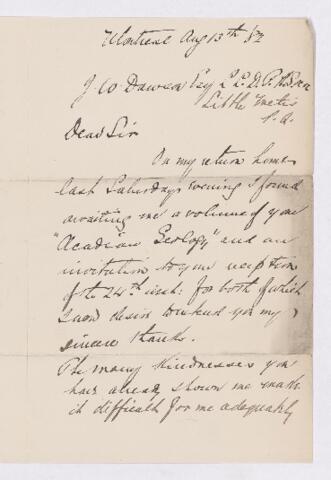 Montreal Aug 13th /82
J. W. Dawson Esq L.L.D.
Little Metis
P. Q.
Dear Sir
On my return home
last Saturday evening I found
awaiting me a volume of your
"Acadian Geology" and an
invitation to your reception
of the 24th inst. for both of which
I now desire to send you my
sincere thanks.
The many kindnesses you
have already shown me make
it difficult for me adequately